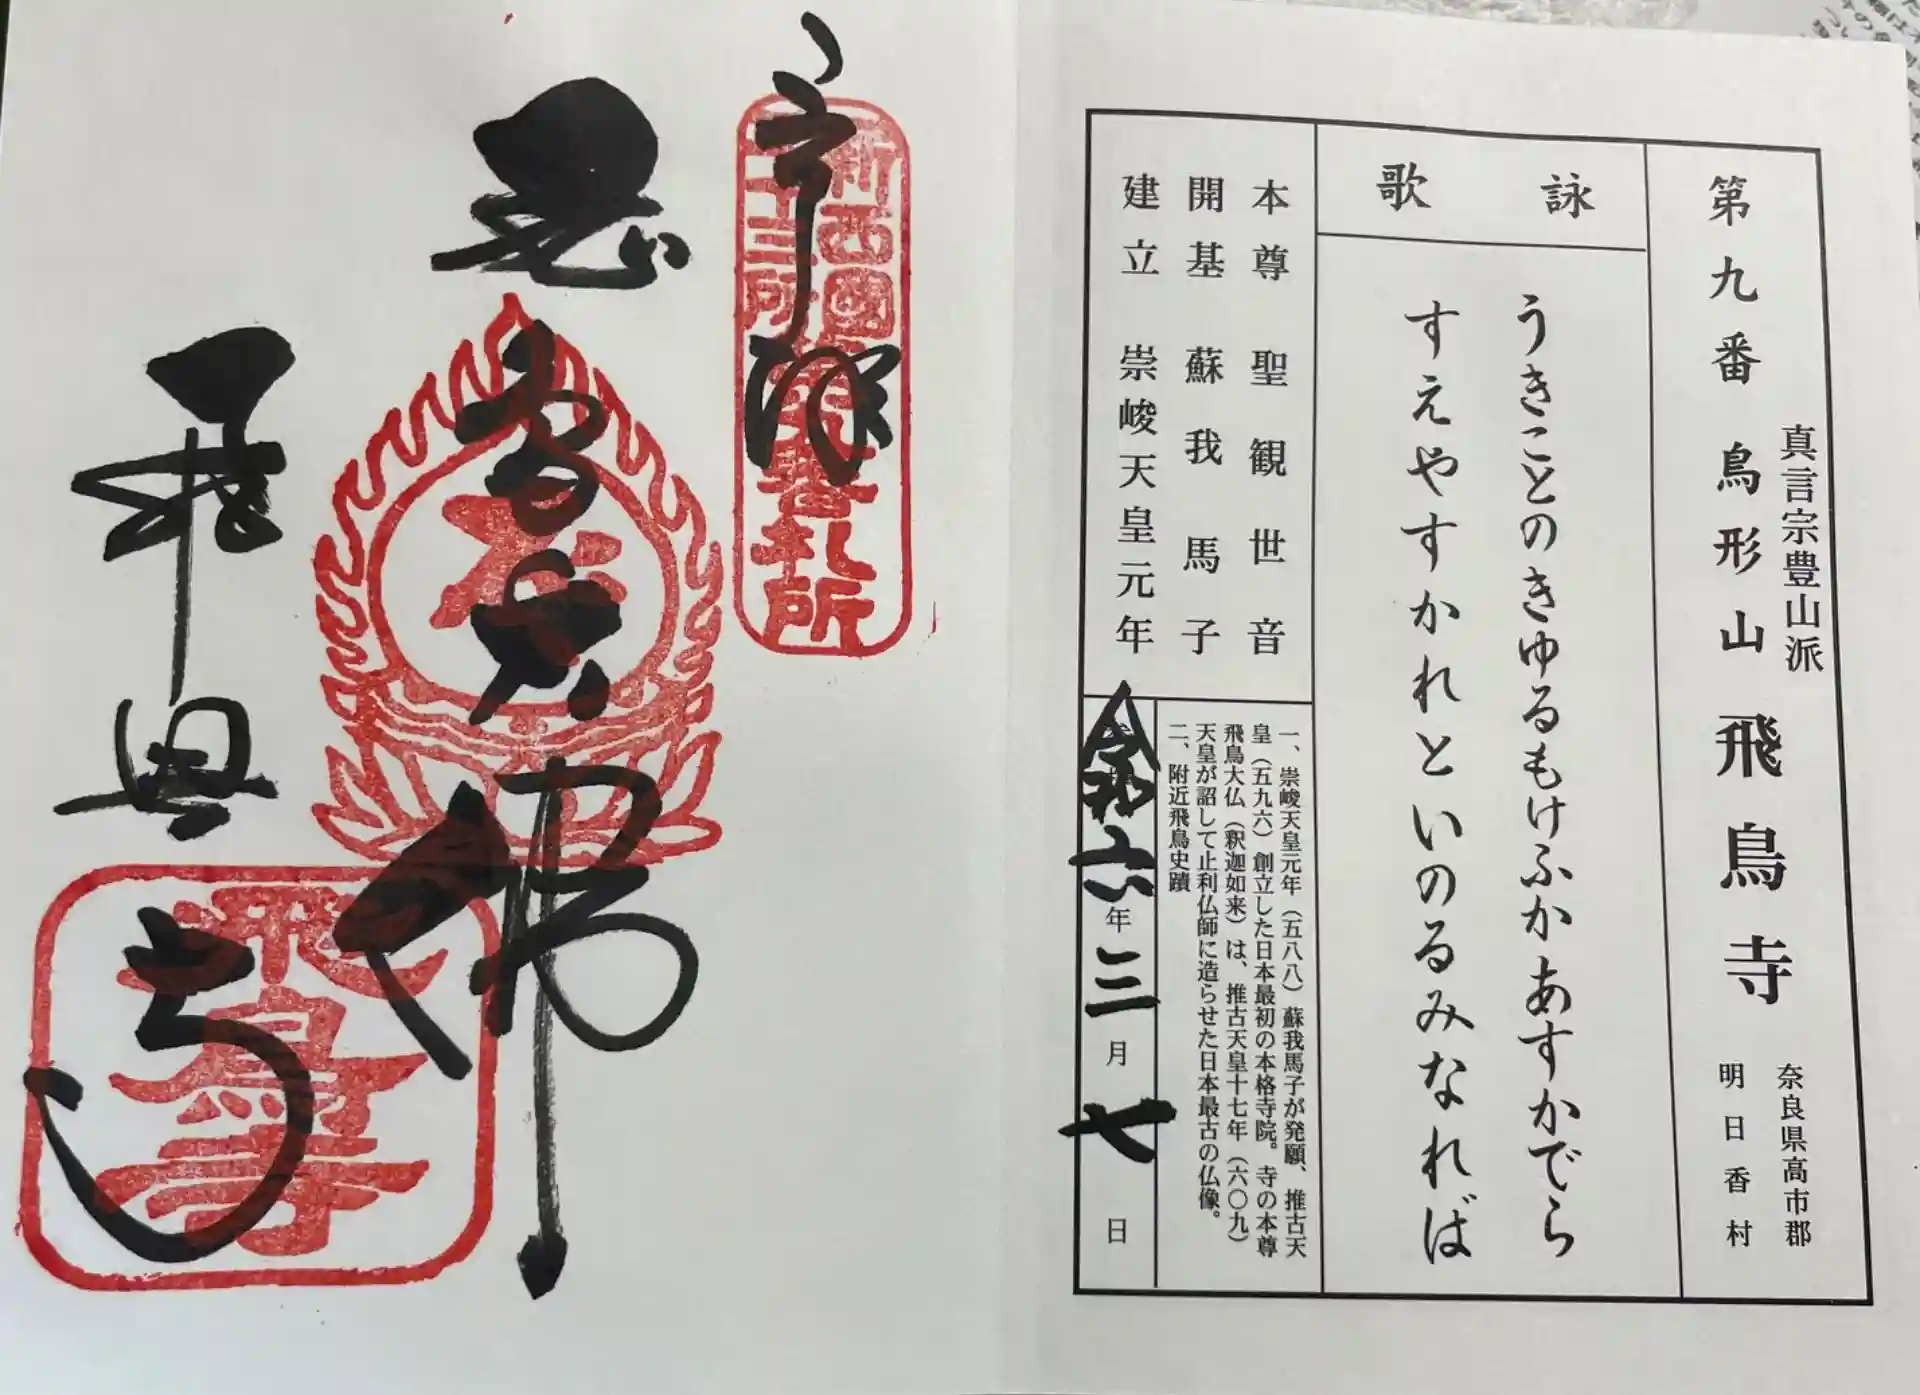 真言宗豊山派
第九番 鳥形山 飛鳥寺
奈良県高市郡
明日香村
詠歌
うきことのきゆるもけふかあすかでら
すえやすかれといのるみなれば
本尊 聖観世音
開基 蘇我馬子
建立 崇峻天皇元年
一、崇峻天皇元年（五八八）蘇我馬子が発願、推古天
皇（五九六）創立した日本最初の本格寺院。寺の本尊
飛鳥大仏（釈迦如来）は、推古天皇十七年（六〇九）
天皇が詔して止利仏師に造らせた日本最古の仏像。
二、附近飛鳥史蹟
令和六年三月七日
奉拝
新西國
三十三所
第九番札所
飛鳥大佛
飛鳥寺
飛鳥寺